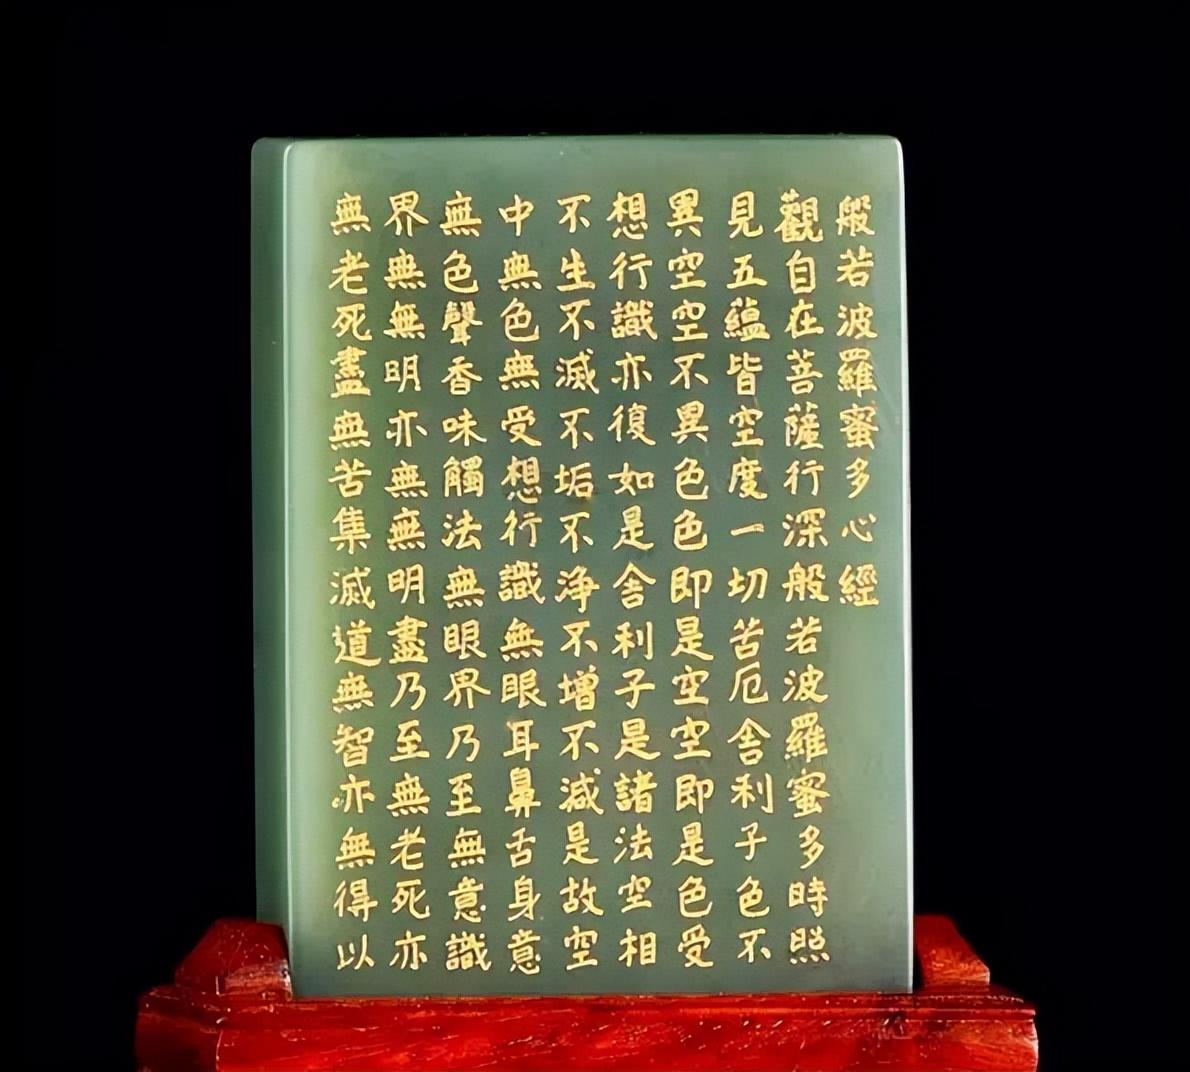 般若波羅蜜多心經
觀自在菩薩行深般若波羅蜜多時照
見五蘊皆空度一切苦厄舍利子色不
異空空不異色色即是空空即是色受
想行識亦復如是舍利子是諸法空相
不生不滅不垢不淨不增不減是故空
中無色無受想行識無眼耳鼻舌身意
無色聲香味觸法無眼界乃至無意識
界無無明亦無無明盡乃至無老死亦
無老死盡無苦集滅道無智亦無得以